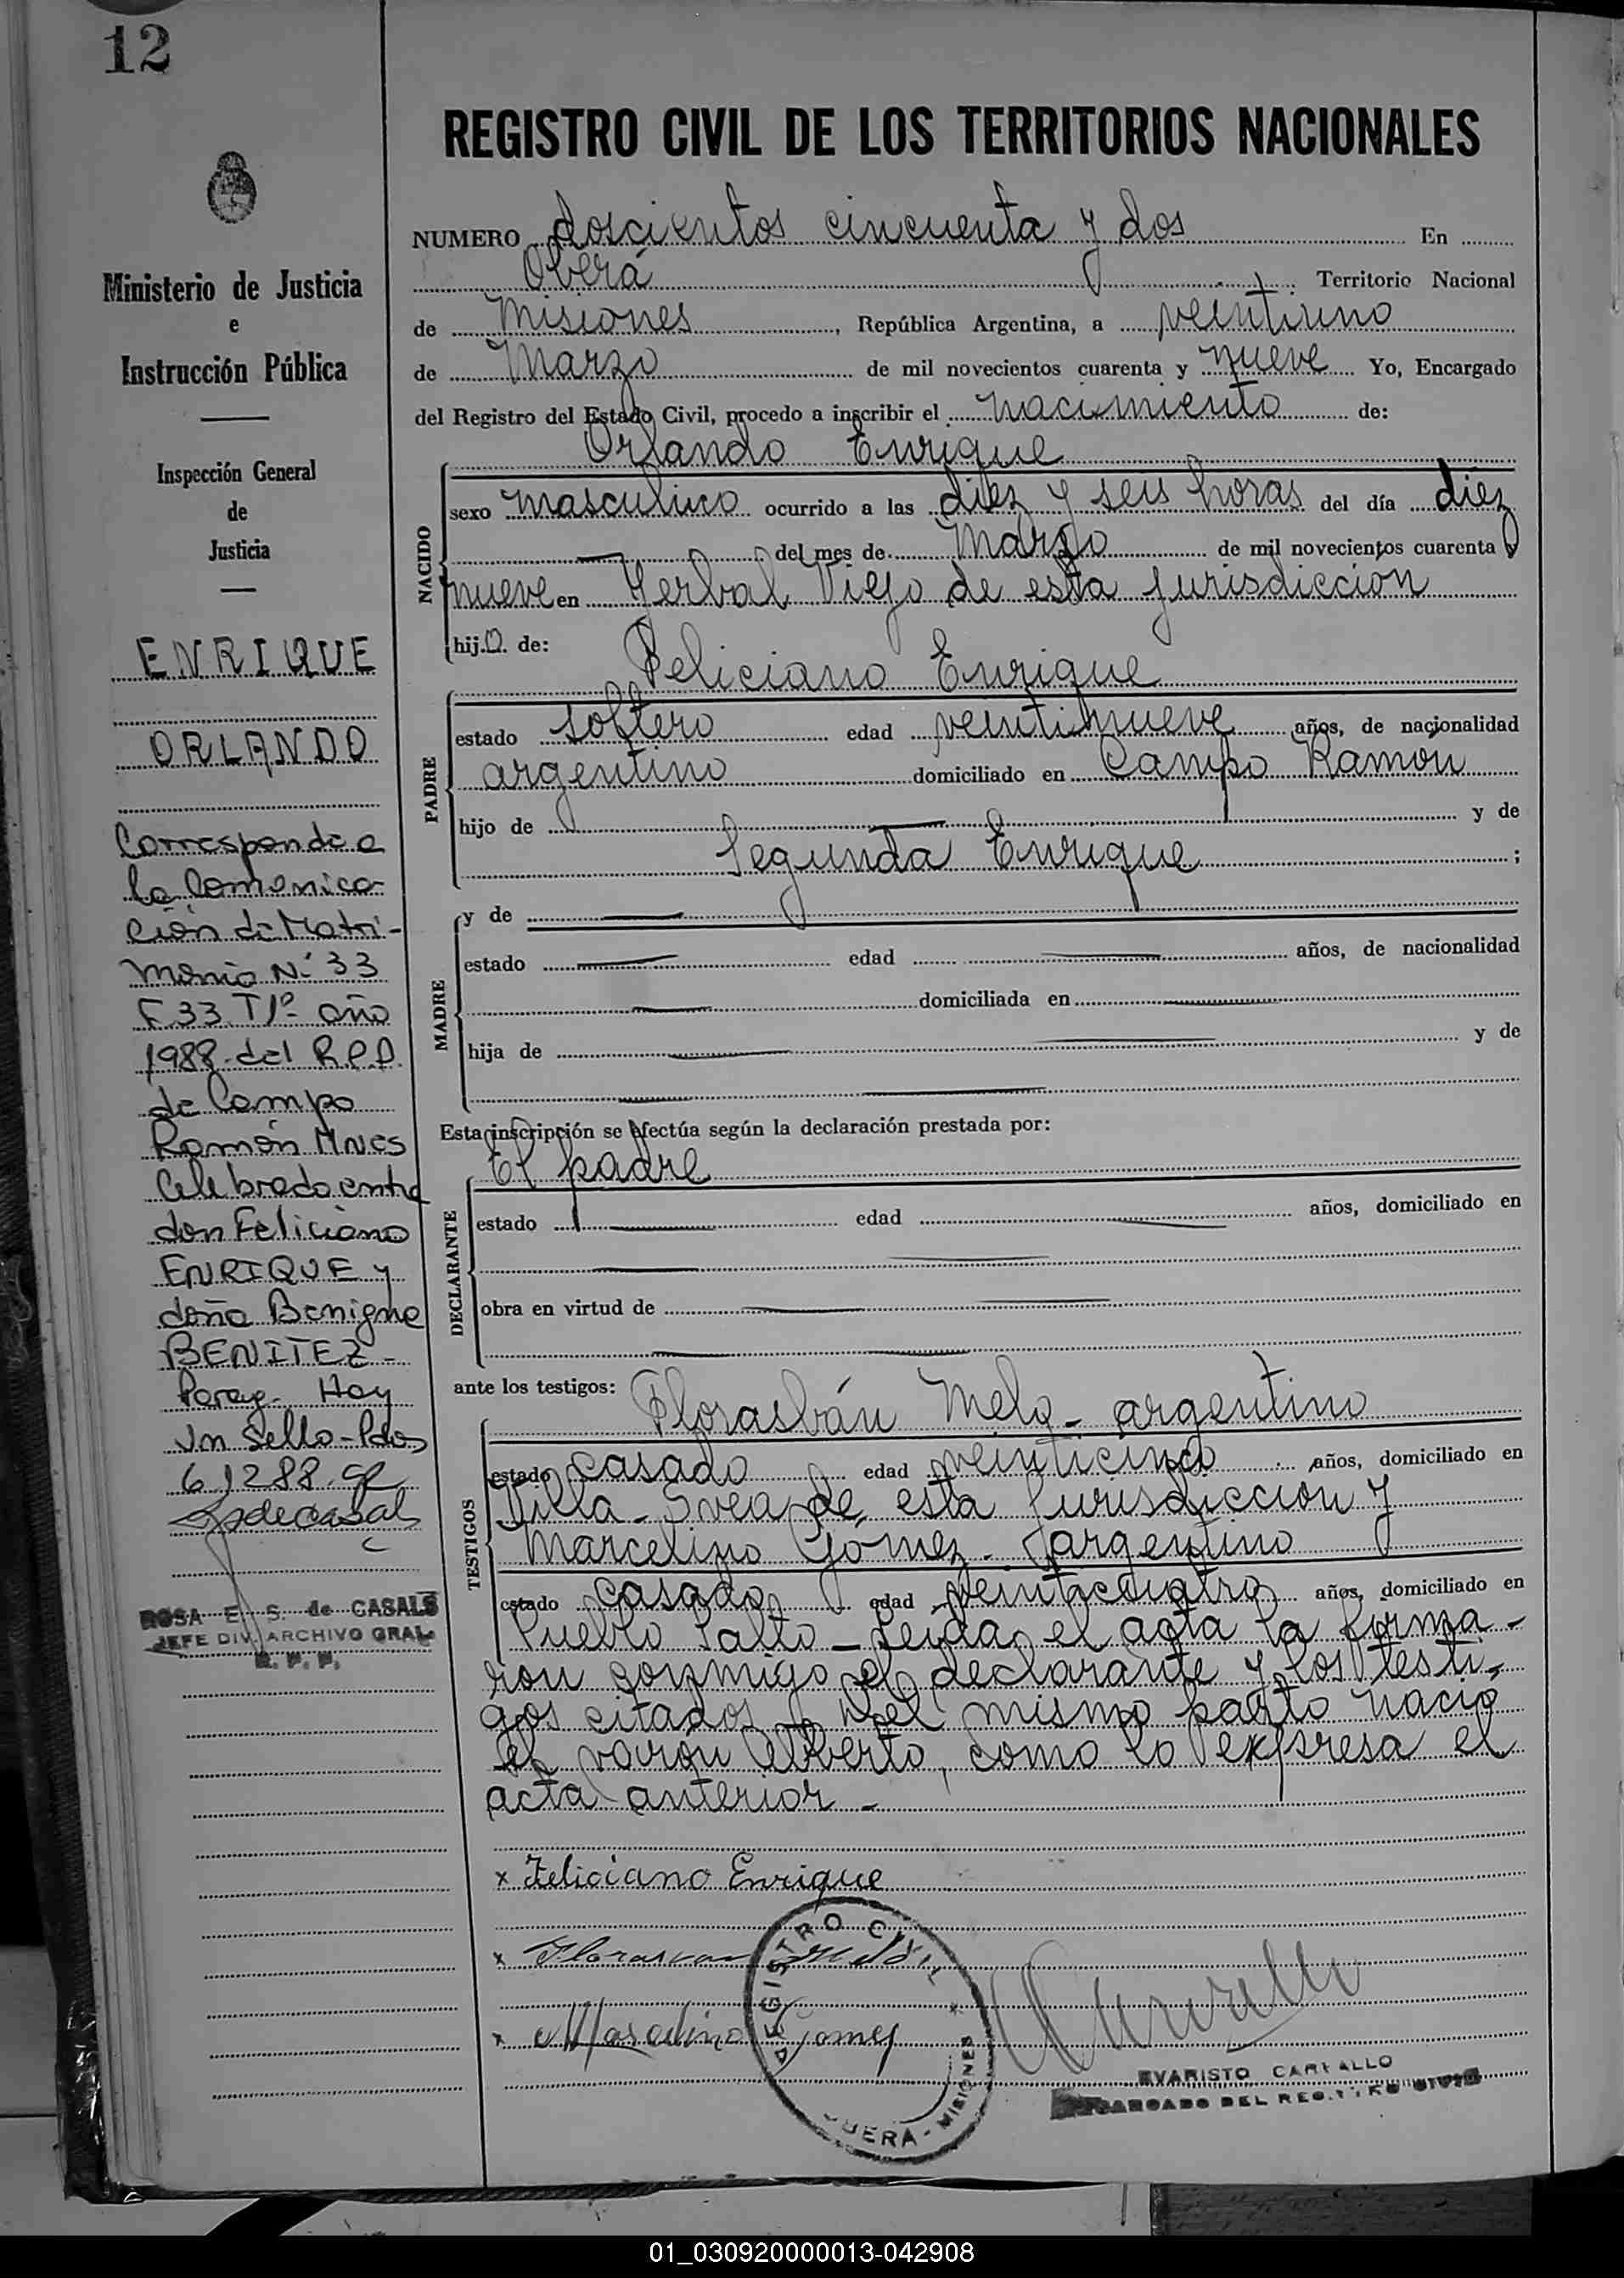 12
REGISTRO CIVIL DE LOS TERRITORIOS NACIONALES
NUMERO doscientos cincuenta y dos En
Oberá Territorio Nacional
de Misiones, República Argentina, a veintiuno
de Marzo de mil novecientos cuarenta y nueve Yo, Encargado
del Registro del Estado Civil, procedo a inscribir el nacimiento de:
Orlando Enrique
NACIDO
sexo masculino ocurrido a las diez y seis horas del día diez
— del mes de Marzo de mil novecientos cuarenta y
nueve en Yerbal Viejo de esta jurisdicción
hijo de:
Feliciano Enrique
PADRE
estado soltero edad veintinueve años, de nacionalidad
argentino domiciliado en Campo Ramón
hijo de — y de
Segunda Enrique ;
MADRE
y de —
estado — edad — años, de nacionalidad
— domiciliada en —
hija de — y de
—
Esta inscripción se efectúa según la declaración prestada por:
El padre
DECLARANTE
estado — edad — años, domiciliado en
—
obra en virtud de —
—
ante los testigos: Florasbán Melo - argentino
TESTIGOS
estado casado edad veinticinco años, domiciliado en
Villa Svea de esta jurisdicción y
Marcelino Gómez - argentino
estado casado edad veinticuatro años, domiciliado en
Pueblo Salto - Leída el acta la firma-
ron conmigo el declarante y los testi-
gos citados - Del mismo parto nació
el varón Alberto, como lo expresa el
acta anterior -
x Feliciano Enrique
x Melo
x Marcelino Gomez
REGISTRO CIVIL
OBERÁ - MISIONES
EVARISTO CARVALLO
ENCARGADO DEL REGISTRO CIVIL
Ministerio de Justicia
e
Instrucción Pública
Inspección General
de
Justicia
ENRIQUE
ORLANDO
Corresponde a
la Comunica-
ción de Matri-
monio Nº 33
F. 33 T 1º año
1988 del R.P.P.
de Campo
Ramón Mnes
Celebrado entre
don Feliciano
ENRIQUE y
doña Benigna
BENITEZ -
Hay
un Sello - Pdos
ROSA E. S. de CASALS
JEFE DIV. ARCHIVO GRAL.
R. P. P.
01_030920000013-042908